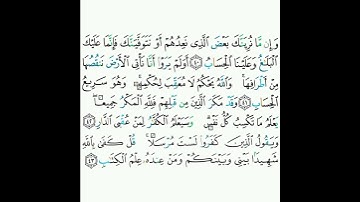 وَإِن مَّا نُرِيَنَّكَ بَعْضَ ٱلَّذِى نَعِدُهُمْ أَوْ نَتَوَفَّيَنَّكَ فَإِنَّمَا عَلَيْكَ
ٱلْبَلَٰغُ وَعَلَيْنَا ٱلْحِسَابُ ٤٠ أَوَلَمْ يَرَوْا۟ أَنَّا نَأْتِى ٱلْأَرْضَ نَنقُصُهَا
مِنْ أَطْرَافِهَا ۚ وَٱللَّهُ يَحْكُمُ لَا مُعَقِّبَ لِحُكْمِهِۦ ۚ وَهُوَ سَرِيعُ
ٱلْحِسَابِ ٤١ وَقَدْ مَكَرَ ٱلَّذِينَ مِن قَبْلِهِمْ فَلِلَّهِ ٱلْمَكْرُ جَمِيعًا ۖ
يَعْلَمُ مَا تَكْسِبُ كُلُّ نَفْسٍ ۗ وَسَيَعْلَمُ ٱلْكُفَّٰرُ لِمَنْ عُقْبَى ٱلدَّارِ ٤٢
وَيَقُولُ ٱلَّذِينَ كَفَرُوا۟ لَسْتَ مُرْسَلًا ۚ قُلْ كَفَىٰ بِٱللَّهِ
شَهِيدًۢا بَيْنِى وَبَيْنَكُمْ وَمَنْ عِندَهُۥ عِلْمُ ٱلْكِتَٰبِ ٤٣